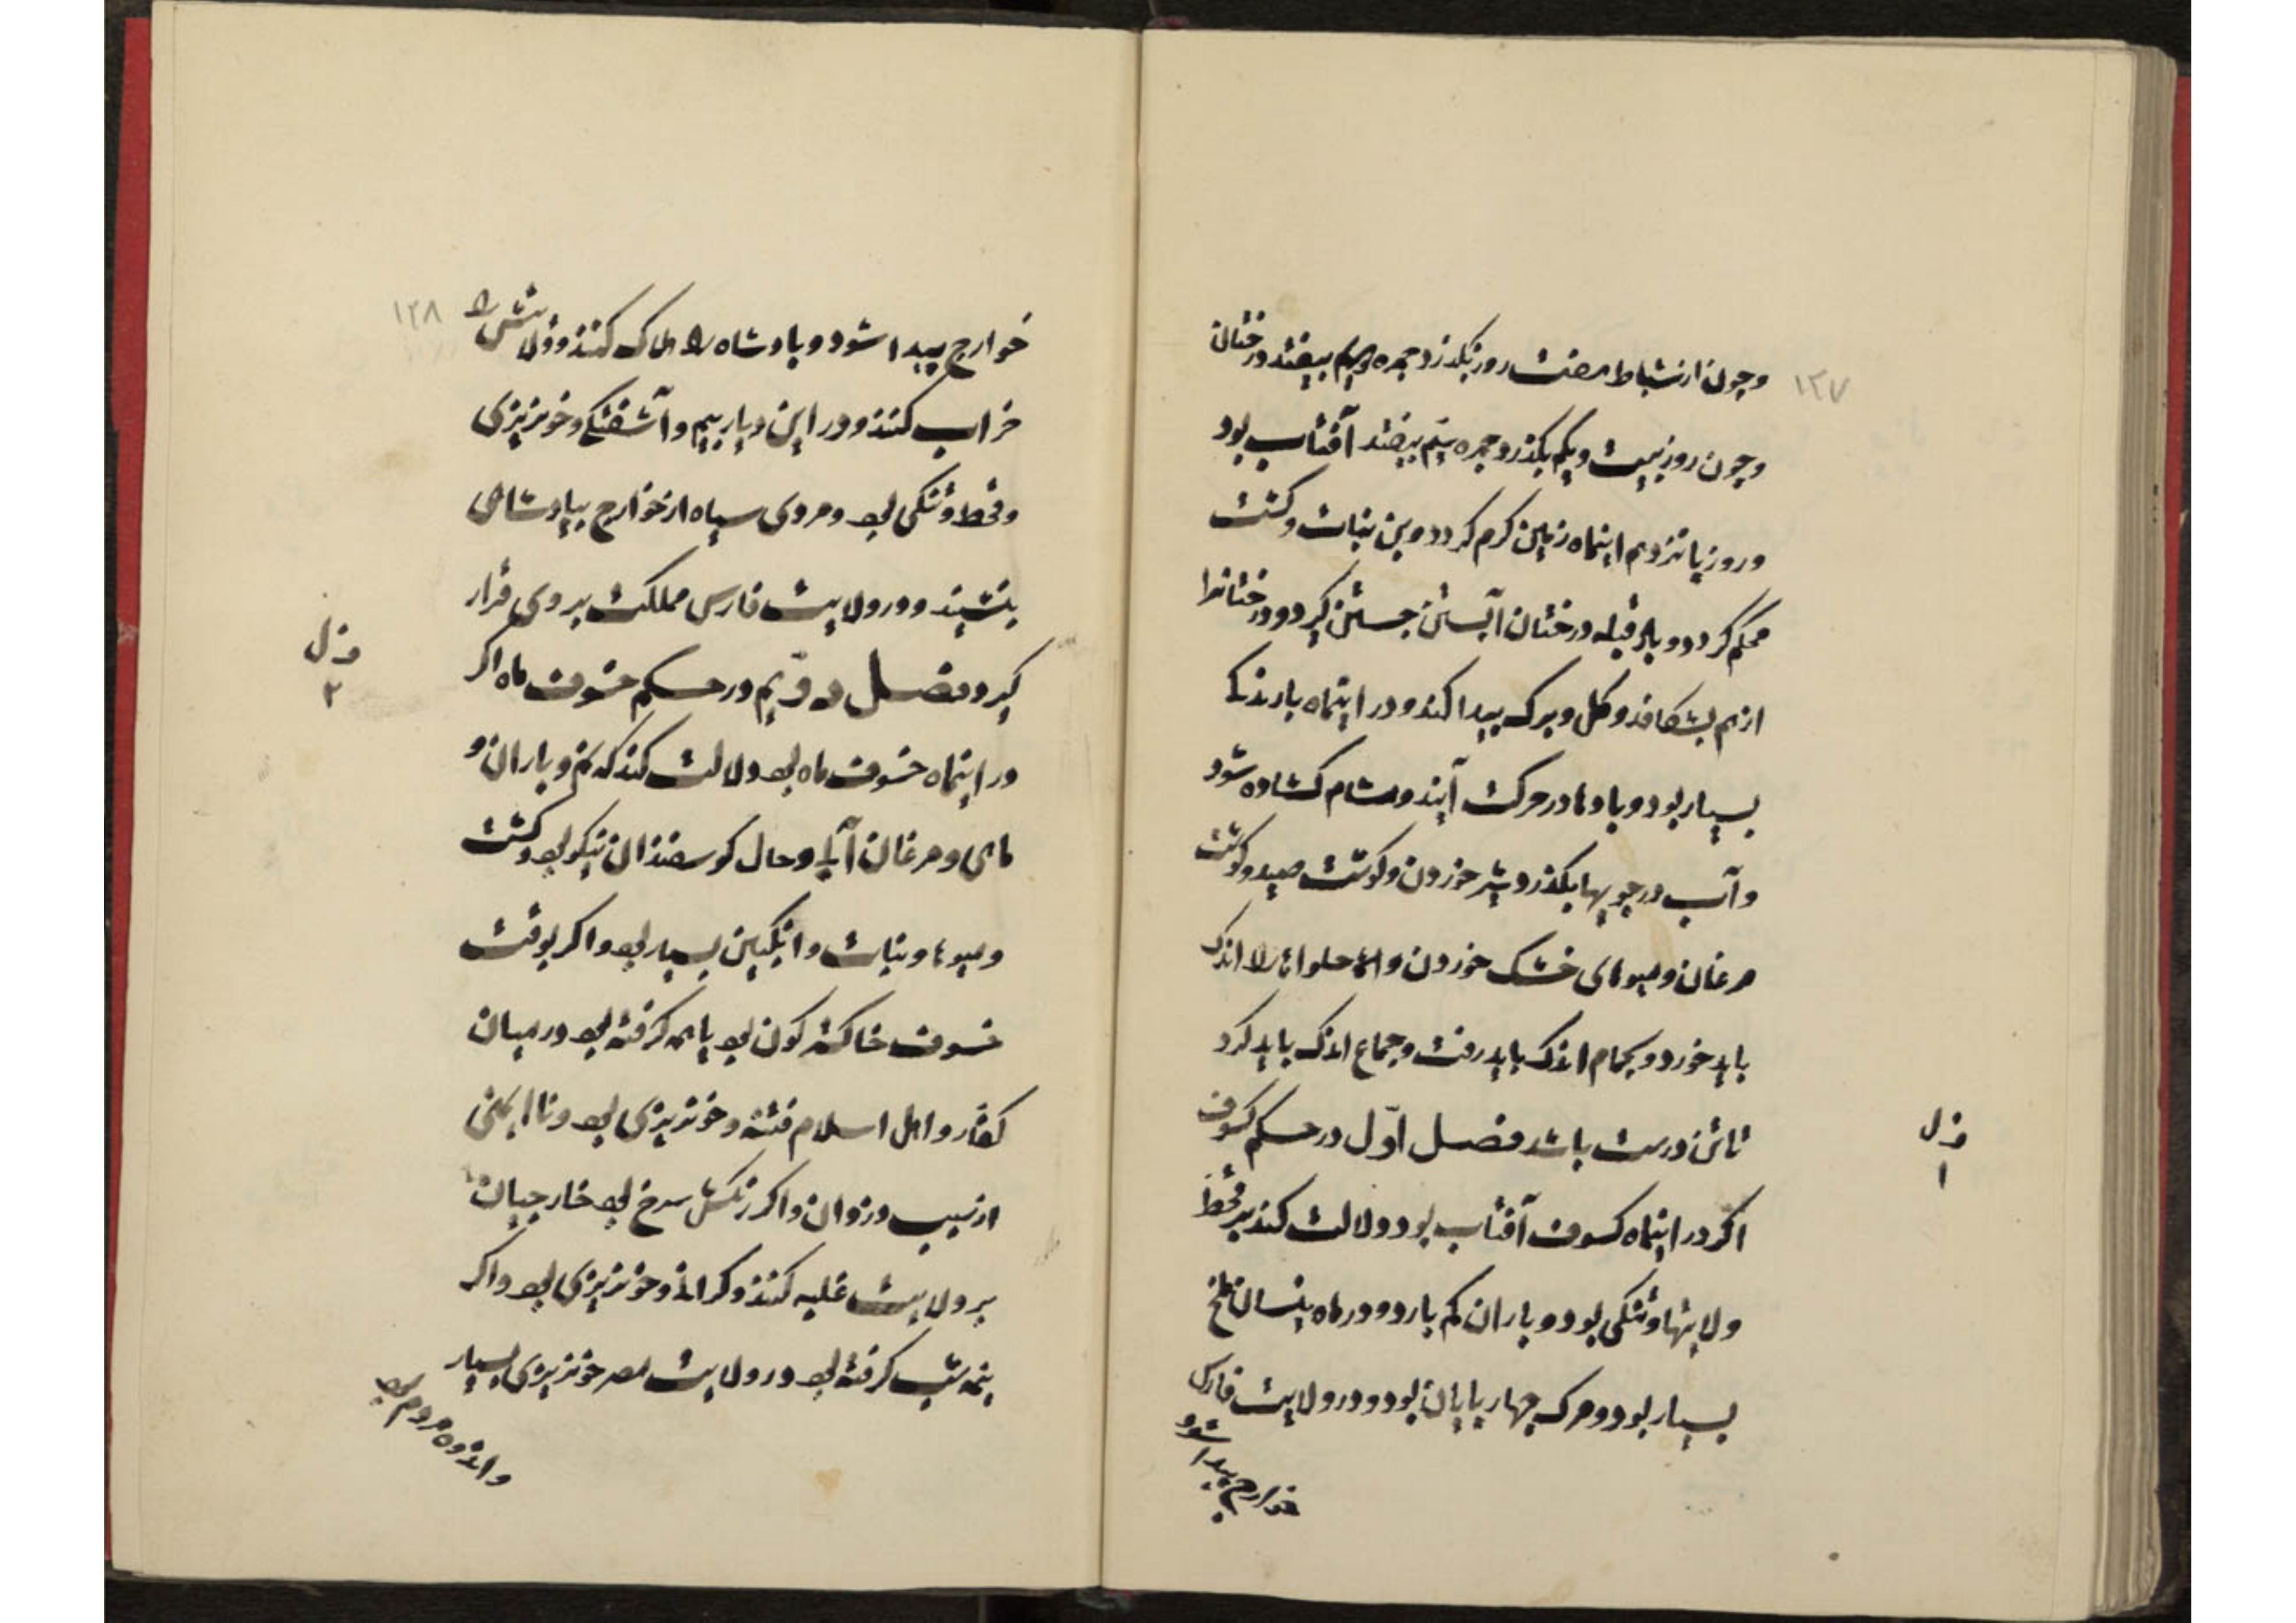 ١٢٧
وچون از شباط هفت روز بگذرد جمره دویم بیفتد درختان
وچون روز بیست ویکم بگذرد جمره سیم بیفتد آفتاب بود
وروز پانزدهم اینماه زمین گرم گردد وبن نبات وکشت
محکم گردد وباد قبله درختان آبستن جستن گیرد ودرختانرا
از هم بشکافد وگل وبرگ پیدا کند ودر اینماه بارندگی
بسیار بود وبادها در حرکت آیند ومشام گشاده شود
وآب در جویها بگذرد شیر خوردن وگوشت صید وگوشت
مرغان ومیوهای خشک خوردن واما حلواها را اندک
باید خورد وبحمام اندک باید رفت وجماع اندک باید کرد
تا تن درست باشد فصل اوّل در حکم کسوف
فـ ل
١
اگر در اینماه کسوف آفتاب بود دلالت کند بر قحط
ولایتها وتنگی بود وباران کم بارد ودر ماه نیسان ملخ
بسیار بود ومرگ چهارپایان بود ودر ولایت فارس
خوارج پیدا شود
١٢٨
خوارج پیدا شود وپادشاه را هلاک کنند وولایتش را
خراب کنند ودر این دیار بیم وآشفتگی وخونریزی
وقحط وتنگی بود ومردی سیاه از خوارج بپادشاهی
بنشیند ودر ولایت فارس مملکت بروی قرار
گیرد فصل دویّم در حکم خسوف ماه اگر
فـ ل
٢
در اینماه خسوف ماه بود دلالت کند که نم وباران و
ماهی ومرغان آبی وحال گوسفندان نیکو بود وکشت
ومیوها ونبات وانگبین بسیار بود واگر بوقت
خسوف خاکستر گون بود یا همه گرفته بود در میان
کفّار واهل اسلام فتنه وخونریزی بود وناایمنی
از نهیب دزدان واگر رنگش سرخ بود خارجیان
بر ولایت غلبه کنند وگرانی وخونریزی بود واگر
نیمه شب گرفته بود در ولایت مصر خونریزی بسیار
واندوه مردم بود